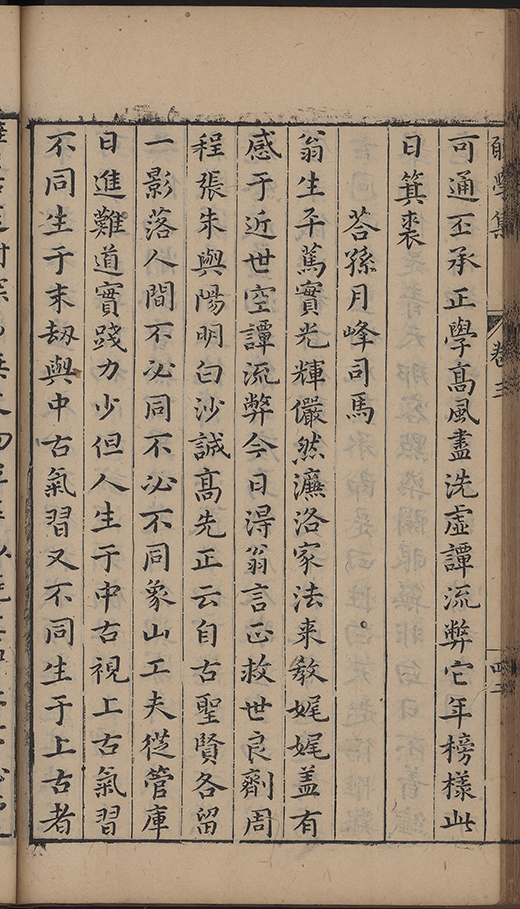 學集 卷三
可通丕承正學髙風盡洗虛譚流弊它年榜樣此
日箕裘
荅孫月峰司馬
翁生平篤實光輝儼然濂洛家法来教娓娓盖有
感于近世空譚流弊今日淂翁言正救世良劑周
程張朱與陽明白沙誠髙先正云自古聖賢各留
一影落人間不必同不必不同象山工夫從管庫
日進難道實踐力少但人生于中古視上古氣習
不同生于末刼與中古氣習又不同生于上古者